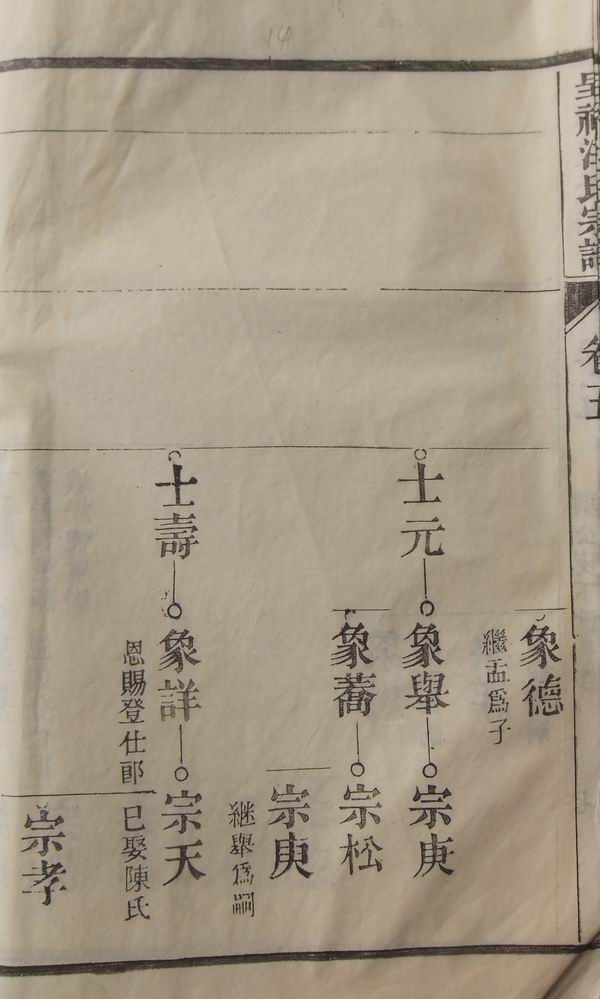 汪氏宗譜
卷五
象德
繼孟爲子
士元
象舉
宗庚
象蕎
宗松
宗庚
继舉爲嗣
士壽
象詳
恩賜登仕郎
宗天
已娶陳氏
宗孝